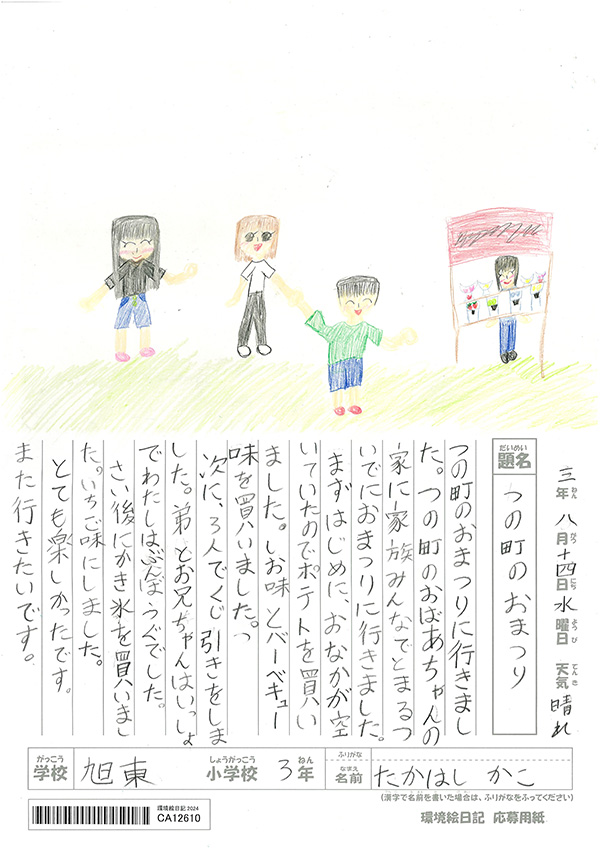 三年 八月 十四日 水曜日 天気 晴れ
ねん がつ にち ようび てんき
だいめい
題名
つの町のおまつり
つの町のおまつりに行きまし
た。つの町のおばあちゃんの
家に家族みんなでとまるつ
いでにおまつりに行きました。
まずはじめに、おなかが空
いていたのでポテトを買い
ました。しお味とバーベキュー
味を買いました。
次に、3人でくじ引きをしま
した。弟とお兄ちゃんはいっしょ
でわたしはぶんぼうぐでした。
さい後にかき氷を買いまし
た。いちご味にしました。
とても楽しかったです。
また行きたいです。
がっこう しょうがっこう ねん ふりがな
学校 旭東 小学校 3年 なまえ 名前 たかはし かこ
(漢字で名前を書いた場合は、ふりがなをふってください)
環境絵日記 2024
CA12610
環境絵日記 応募用紙